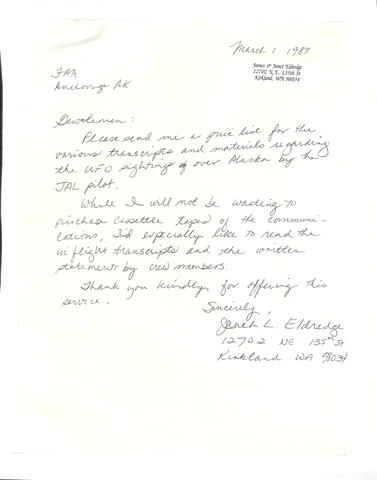 March 1 1987
James & Janet Eldredge
12702 N.E. 135th St.
Kirkland, WA 98034
FAA
Anchorage AK
Gentlemen:
Please send me a price list for the
various transcripts and materials regarding
the UFO sightings over Alaska by the
JAL pilot.
While I will not be wanting to
purchase cassette tapes of the communi-
cations, I'd especially like to read the
inflight transcripts and the written
statements by crew members.
Thank you kindly for offering this
service.
Sincerely,
Janet L. Eldredge
12702 NE 135th St
Kirkland WA 98034